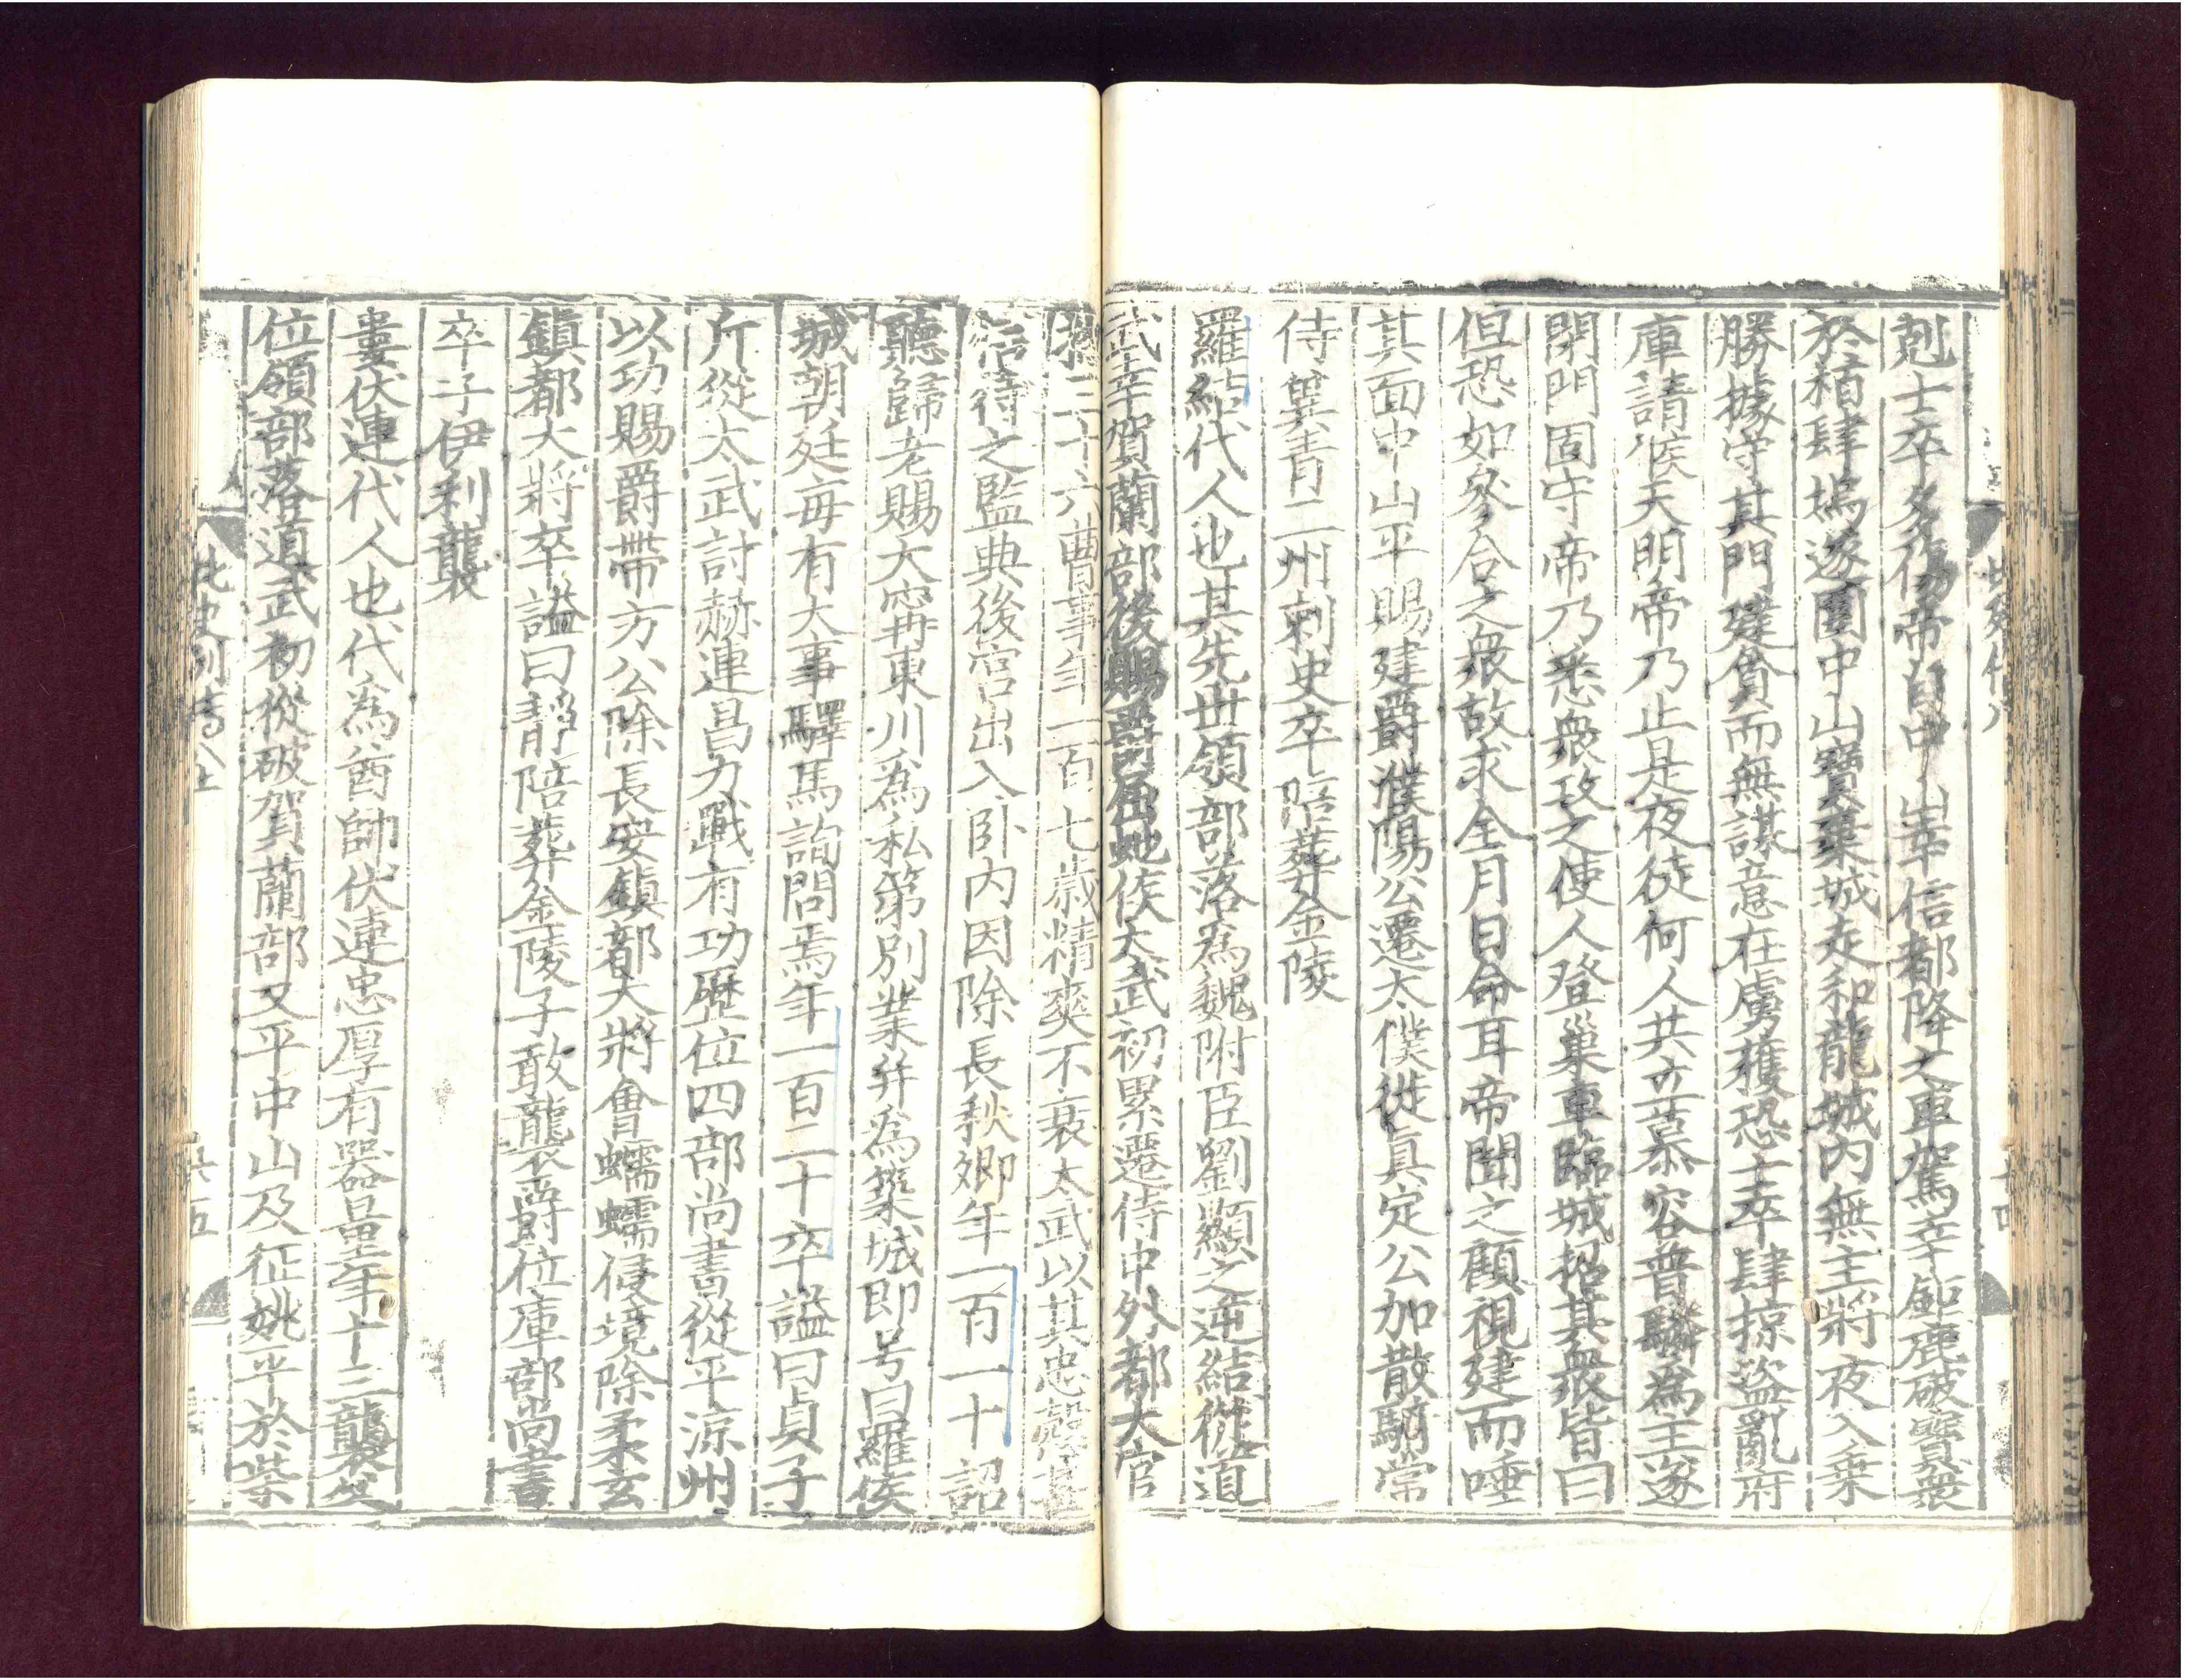 剋士卒多傷帝自中山幸信都降之車駕幸鉅鹿破寶衆
於栢肆塢遂圍中山寶棄城走和龍城內無主將夜入乗
勝據守其門建貪而無謀意在虜獲恐士卒肆掠盜亂府
庫請候天明帝乃止是夜徒何人共立慕容普驎為主遂
閉門固守帝乃悉衆攻之使人登巢車臨城招其衆皆曰
但恐如參合之衆故求全月日命耳帝聞之顧視建而唾
其面中山平賜建爵濮陽公遷太僕徙真定公加散騎常
侍冀青二州刺史卒陪葬金陵
羅結代人也其先世領部落為魏附臣劉顯之逆結從道
武幸賀蘭部後賜爵屈虵侯太武初累遷侍中外都大官
揔三十六曹事年一百七歲精爽不衰太武以其忠慤甚
信待之監典後宮出入卧內因除長秋卿年一百一十詔
聽歸老賜大寧東川為私第別業并為築城即号曰羅侯
城朝廷每有大事驛馬詢問焉年一百二十卒謚曰貞子
斤從太武討赫連昌力戰有功歷位四部尚書從平涼州
以功賜爵帶方公除長安鎮都大將會蠕蠕侵境除柔玄
鎮都大將卒謚曰靜陪葬金陵子敢襲爵位庫部尚書
卒子伊利襲
婁伏連代人也代為酋帥伏連忠厚有器量年十三襲父
位領部落道武初從破賀蘭部又平中山及征姚平於柴
北史列傳八上
十五